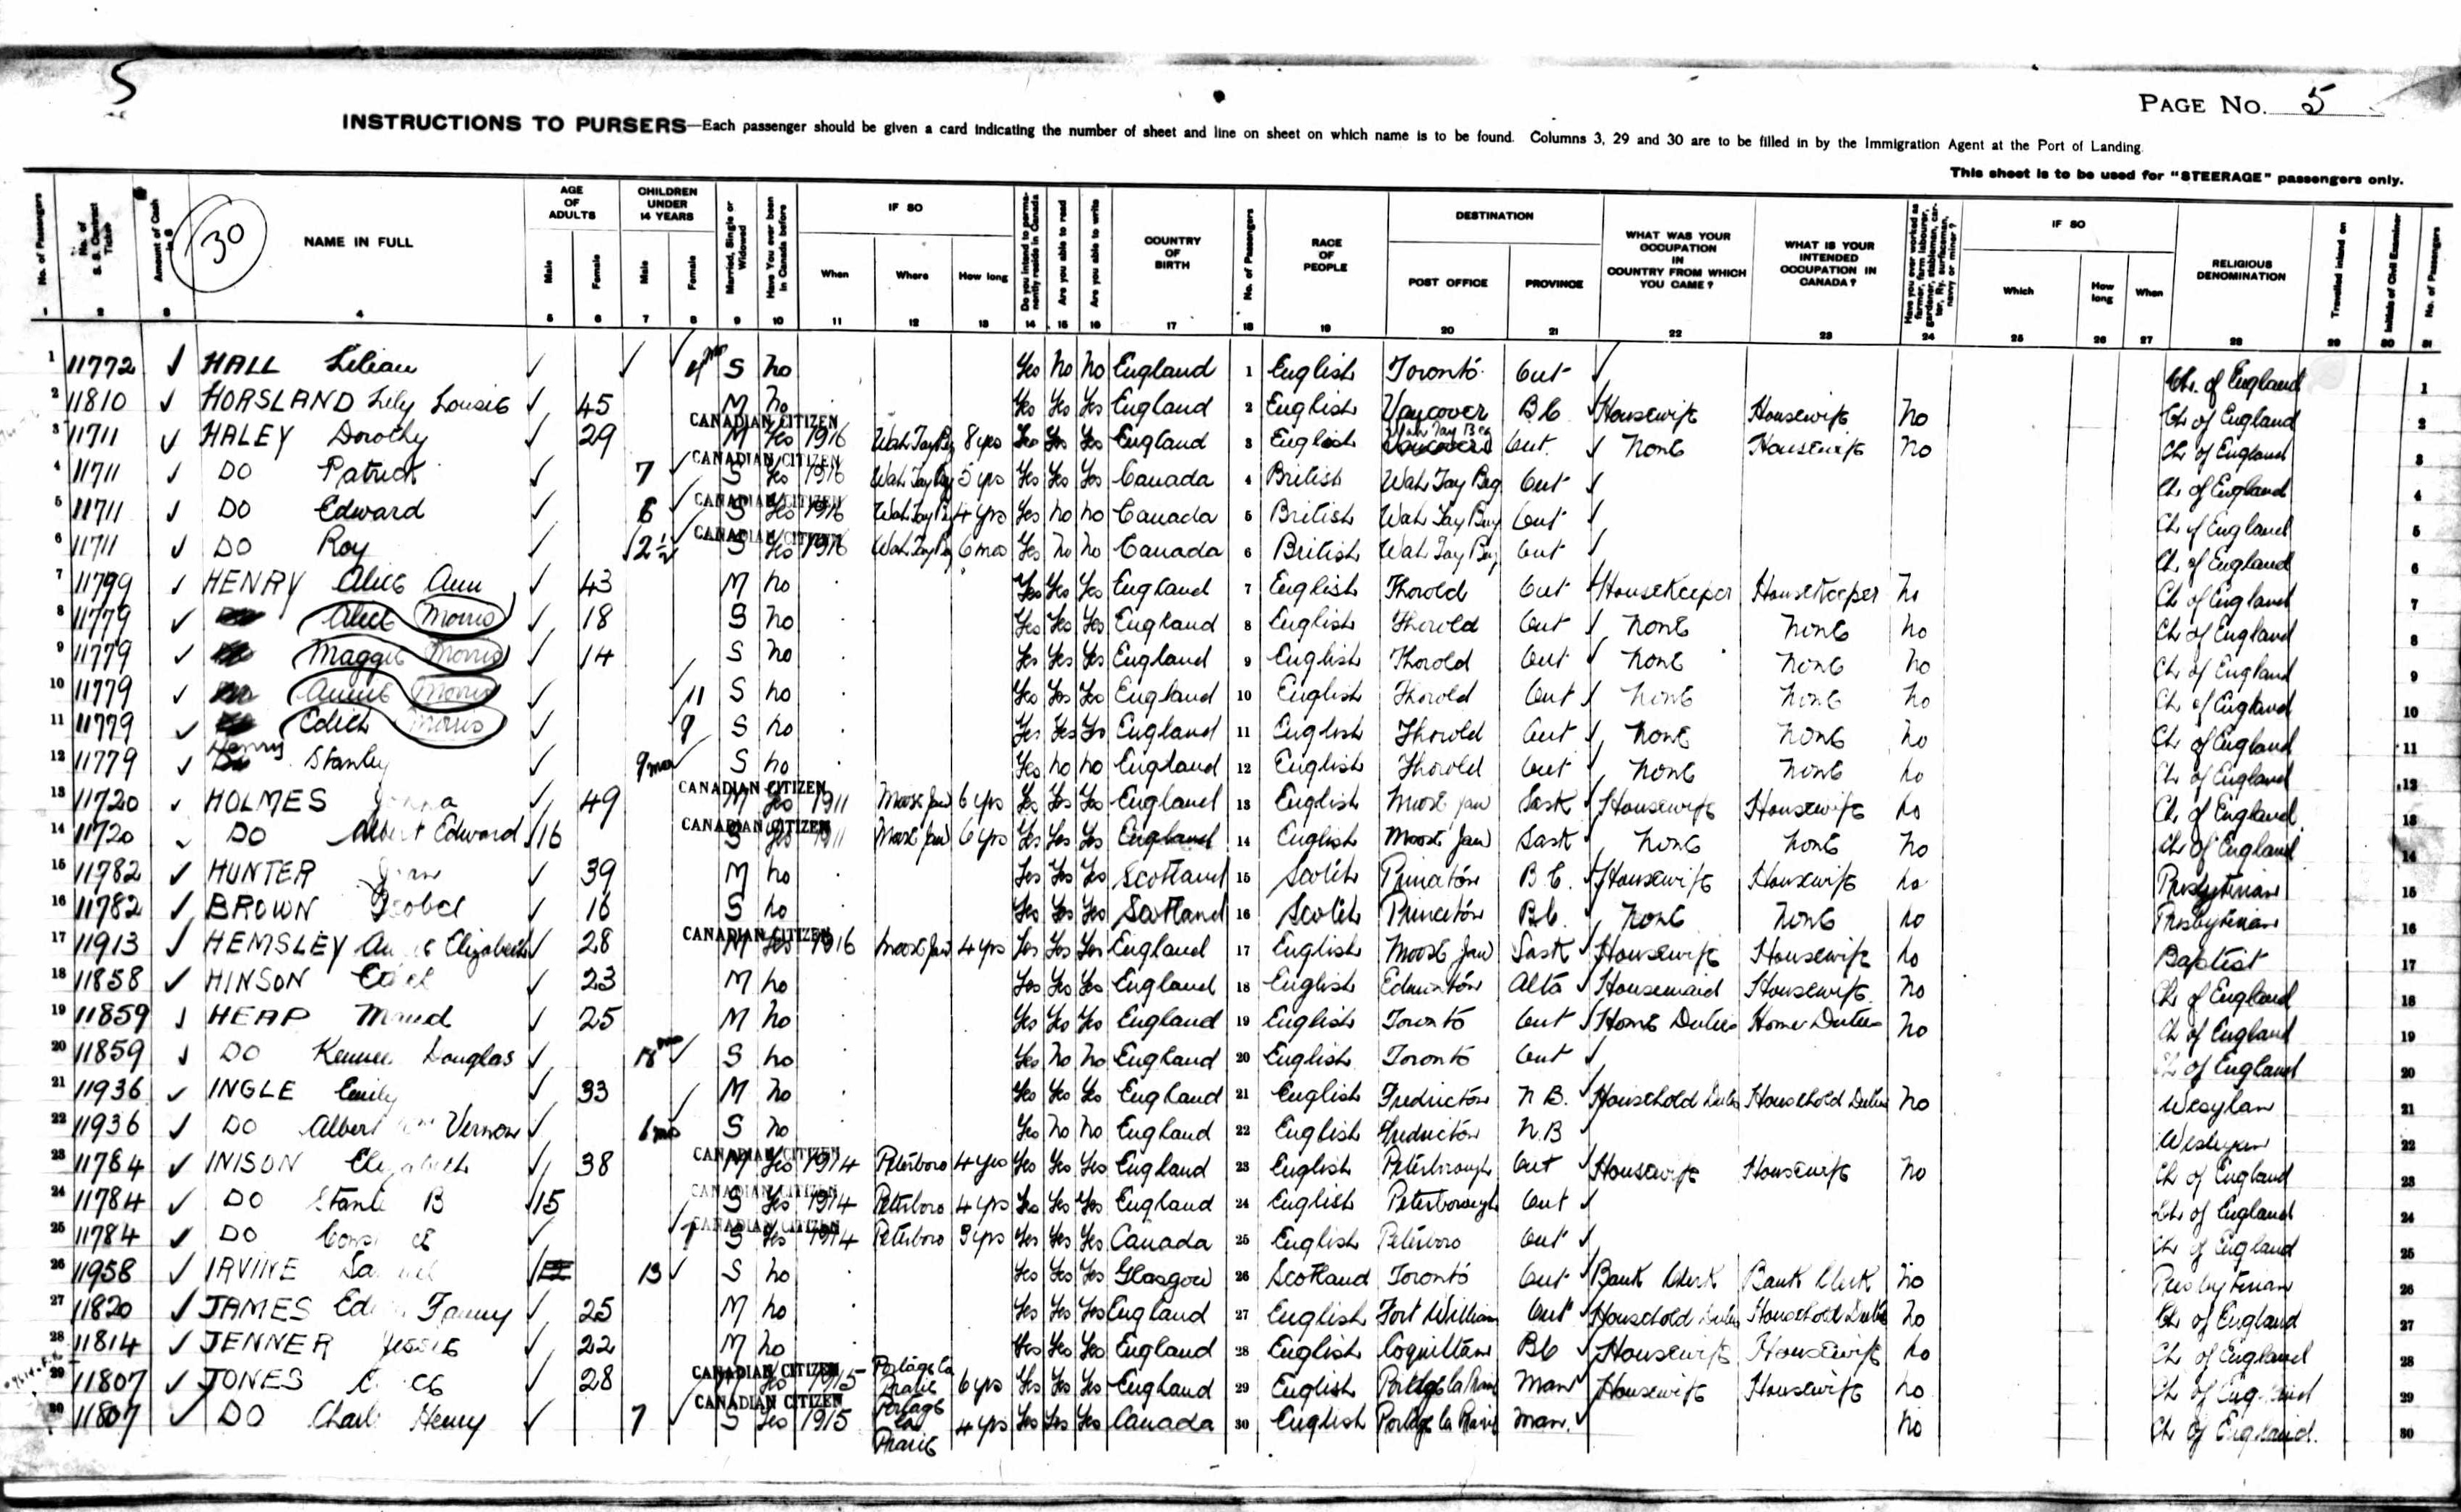 5
PAGE No. 5
INSTRUCTIONS TO PURSERS—Each passenger should be given a card indicating the number of sheet and line on sheet on which name is to be found. Columns 3, 29 and 30 are to be filled in by the Immigration Agent at the Port of Landing.
This sheet is to be used for "STEERAGE" passengers only.
No. of Passengers No. of S. S. Contract Ticket Amount of Cash in $ 30 NAME IN FULL AGE OF ADULTS Male Female CHILDREN UNDER 14 YEARS Male Female Married, Single or Widowed Have You ever been in Canada before IF SO When Where How long Do you intend to permanently reside in Canada Are you able to read Are you able to write COUNTRY OF BIRTH No. of Passengers RACE OF PEOPLE DESTINATION POST OFFICE PROVINCE WHAT WAS YOUR OCCUPATION IN COUNTRY FROM WHICH YOU CAME? WHAT IS YOUR INTENDED OCCUPATION IN CANADA? Have you ever worked as farmer, farm labourer, gardener, stableman, carter, Ry. surfaceman, navvy or miner? IF SO Which How long When RELIGIOUS DENOMINATION Travelled inland on Initials of Civil Examiner No. of Passengers
1 2 3 4 5 6 7 8 9 10 11 12 13 14 15 16 17 18 19 20 21 22 23 24 25 26 27 28 29 30 31
1 11772 HALL Lilian S no Yes No No England 1 English Toronto Ont Ch. of England 1
2 11810 HORSLAND Lily Louise 45 M No Yes Yes Yes England 2 English Vancover B.C Housewife Housewife No Ch of England 2
3 11711 HALEY Dorothy 29 CANADIAN CITIZEN M Yes 1916 8 yrs Yes Yes Yes England 3 English Ont. None Housewife No Ch of England 3
4 11711 DO Patrick 7 CANADIAN CITIZEN S Yes 1916 5 yrs Yes Yes Yes Canada 4 British Ont Ch of England 4
5 11711 DO Edward 6 CANADIAN CITIZEN S Yes 1916 4 yrs Yes no no Canada 5 British Ont Ch of England 5
6 11711 DO Roy 2½ CANADIAN CITIZEN S Yes 1916 6 mos Yes no no Canada 6 British Ont Ch of England 6
7 11799 HENRY Alice Ann 43 M no Yes Yes Yes England 7 English Thorold Ont HouseKeeper HouseKeeper No Ch of England 7
8 11779 Alice Morris 18 S no Yes Yes Yes England 8 English Thorold Ont None None No Ch of England 8
9 11779 Maggie Morris 14 S no Yes Yes Yes England 9 English Thorold Ont None None No Ch of England 9
10 11779 Annie Morris 11 S no Yes Yes Yes England 10 English Thorold Ont None None No Ch of England 10
11 11779 Edith Morris 9 S no Yes Yes Yes England 11 English Thorold Ont None None No Ch of England 11
12 11779 Henry Stanley 9 mos S no Yes no no England 12 English Thorold Ont None None no Ch of England 12
13 11720 HOLMES 49 CANADIAN CITIZEN M Yes 1911 Moose Jaw 6 yrs Yes Yes Yes England 13 English Moose Jaw Sask Housewife Housewife no Ch of England 13
14 11720 DO Albert Edward 16 CANADIAN CITIZEN S Yes 1911 Moose Jaw 6 yrs Yes Yes Yes England 14 English Moose Jaw Sask None None No Ch of England 14
15 11782 HUNTER 39 M no Yes Yes Yes Scotland 15 Scotch Princeton B.C. Housewife Housewife no Presbyterian 15
16 11782 BROWN Isobel 16 S no Yes Yes Yes Scotland 16 Scotch Princeton B.C. None None no Presbyterian 16
17 11913 HEMSLEY Elizabeth 28 CANADIAN CITIZEN M Yes 1916 Moose Jaw 4 yrs Yes Yes Yes England 17 English Moose Jaw Sask Housewife Housewife no Baptist 17
18 11858 HINSON 23 M no Yes Yes Yes England 18 English Edmonton Alta Housemaid Housewife. No Ch of England 18
19 11859 HEAP Maud 25 M no Yes Yes Yes England 19 English Toronto Ont Home Duties Home Duties No Ch of England 19
20 11859 DO Douglas 18 mos S no Yes No No England 20 English Toronto Ont Ch of England 20
21 11936 INGLE Emily 33 M No Yes Yes Yes England 21 English Fredricton N.B. Household Duties Household Duties No Wesylan 21
22 11936 DO Albert Vernon 6 mos S no Yes No No England 22 English Fredricton N.B Wesleyan 22
23 11784 INISON Elizabeth 38 CANADIAN CITIZEN M Yes 1914 Peterboro 4 yrs Yes Yes Yes England 23 English Peterborough Ont Housewife Housewife No Ch of England 23
24 11784 DO B 15 CANADIAN CITIZEN S Yes 1914 Peterboro 4 yrs Yes Yes Yes England 24 English Peterborough Ont Ch of England 24
25 11784 DO CANADIAN CITIZEN S Yes 1914 Peterboro 3 yrs Yes Yes Yes Canada 25 English Peterboro Ont Ch of England 25
26 11958 IRVINE 13 S no Yes Yes Yes Glasgow 26 Scotland Toronto Ont Bank Clerk Bank Clerk No Presbyterian 26
27 11820 JAMES Fanny 25 M no Yes Yes Yes England 27 English Fort William Ont Household Duties Household Duties No Ch of England 27
28 11814 JENNER Jessie 22 M no Yes Yes Yes England 28 English Coquitlam BC Housewife Housewife no Ch of England 28
29 11807 JONES 28 CANADIAN CITIZEN M Yes 1915 Portage la Prarie 6 yrs Yes Yes Yes England 29 English Portage la Prarie Man Housewife Housewife no Ch of England 29
30 11807 DO Henry 7 CANADIAN CITIZEN S Yes 1915 Portage la Prarie 4 yrs Yes Yes Yes Canada 30 English Portage la Prarie Man. No Ch of England. 30